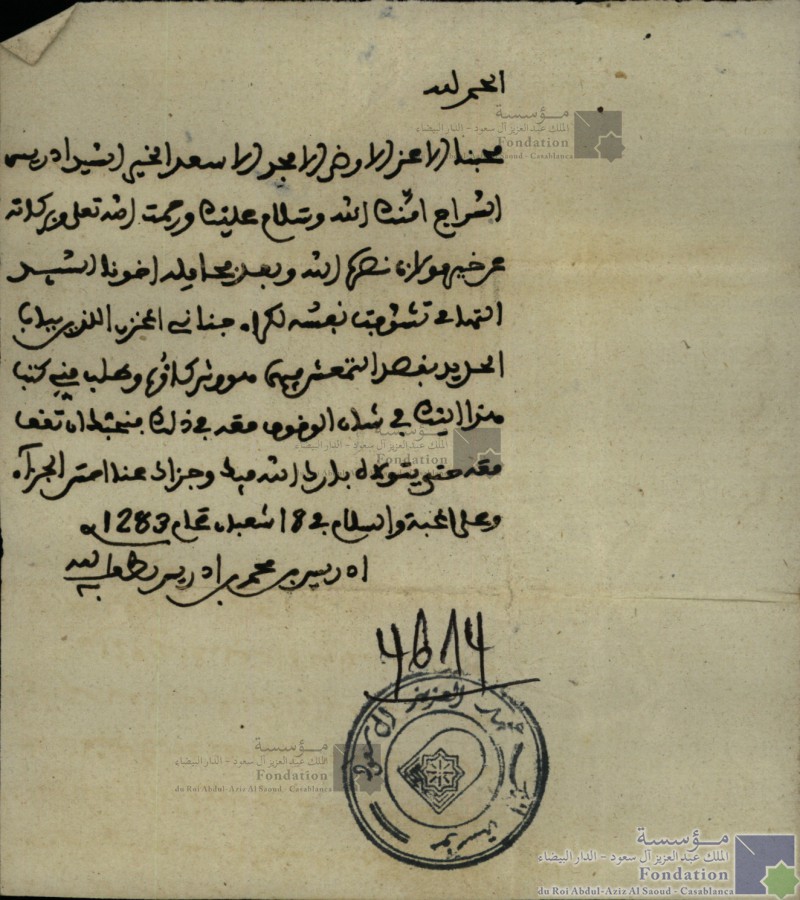 الحمد لله
محبنا الاعز الارضى الامجد الاسعد الخير السيد ادريس
السراج امنك الله وسلام عليك ورحمت الله تعلى وبركاته
عن خير مولانا نصره الله وبعد اخونا السيد
التهامي تشوفت نفسه جنان المخزن الذي بباب
الحديد بقصد وطلب مني كتب
هذا اليك في شان الوقوف معه في ذلك فنحبك ان تقف
معه حتى بارك الله فيك وجزاك عنا احسن الجزآء
وعلى المحبة والسلام في 18 شعبان عام 1283
ادريس بن محمد بن ادريس لطف الله به
4614
مؤسسة
الملك عبد العزيز آل سعود - الدار البيضاء
Fondation
du Roi Abdul-Aziz Al Saoud - Casablanca